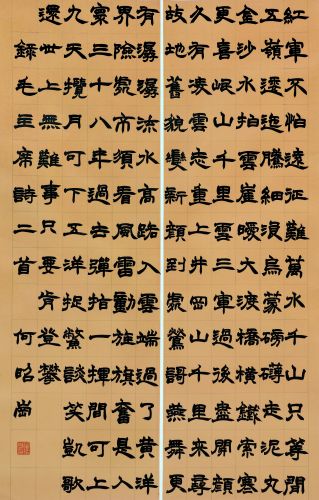 紅軍不怕遠征難萬水千山只等閒
五嶺逶迤騰細浪烏蒙磅礴走泥丸
金沙水拍雲崖暖大渡橋橫鐵索寒
更喜岷山千里雪三軍過後盡開顏
久有凌雲志重上井岡山千里來尋
故地舊貌變新顏到處鶯謌燕舞更
有潺潺流水高路入雲端過了黃洋
界險處不須看風雷動旌旗奮是人
寰三十八年過去彈指一揮間可上
九天攬月可下五洋捉鱉談笑凱歌
還世上無難事只要肯登攀
錄毛主席詩二首 何昭